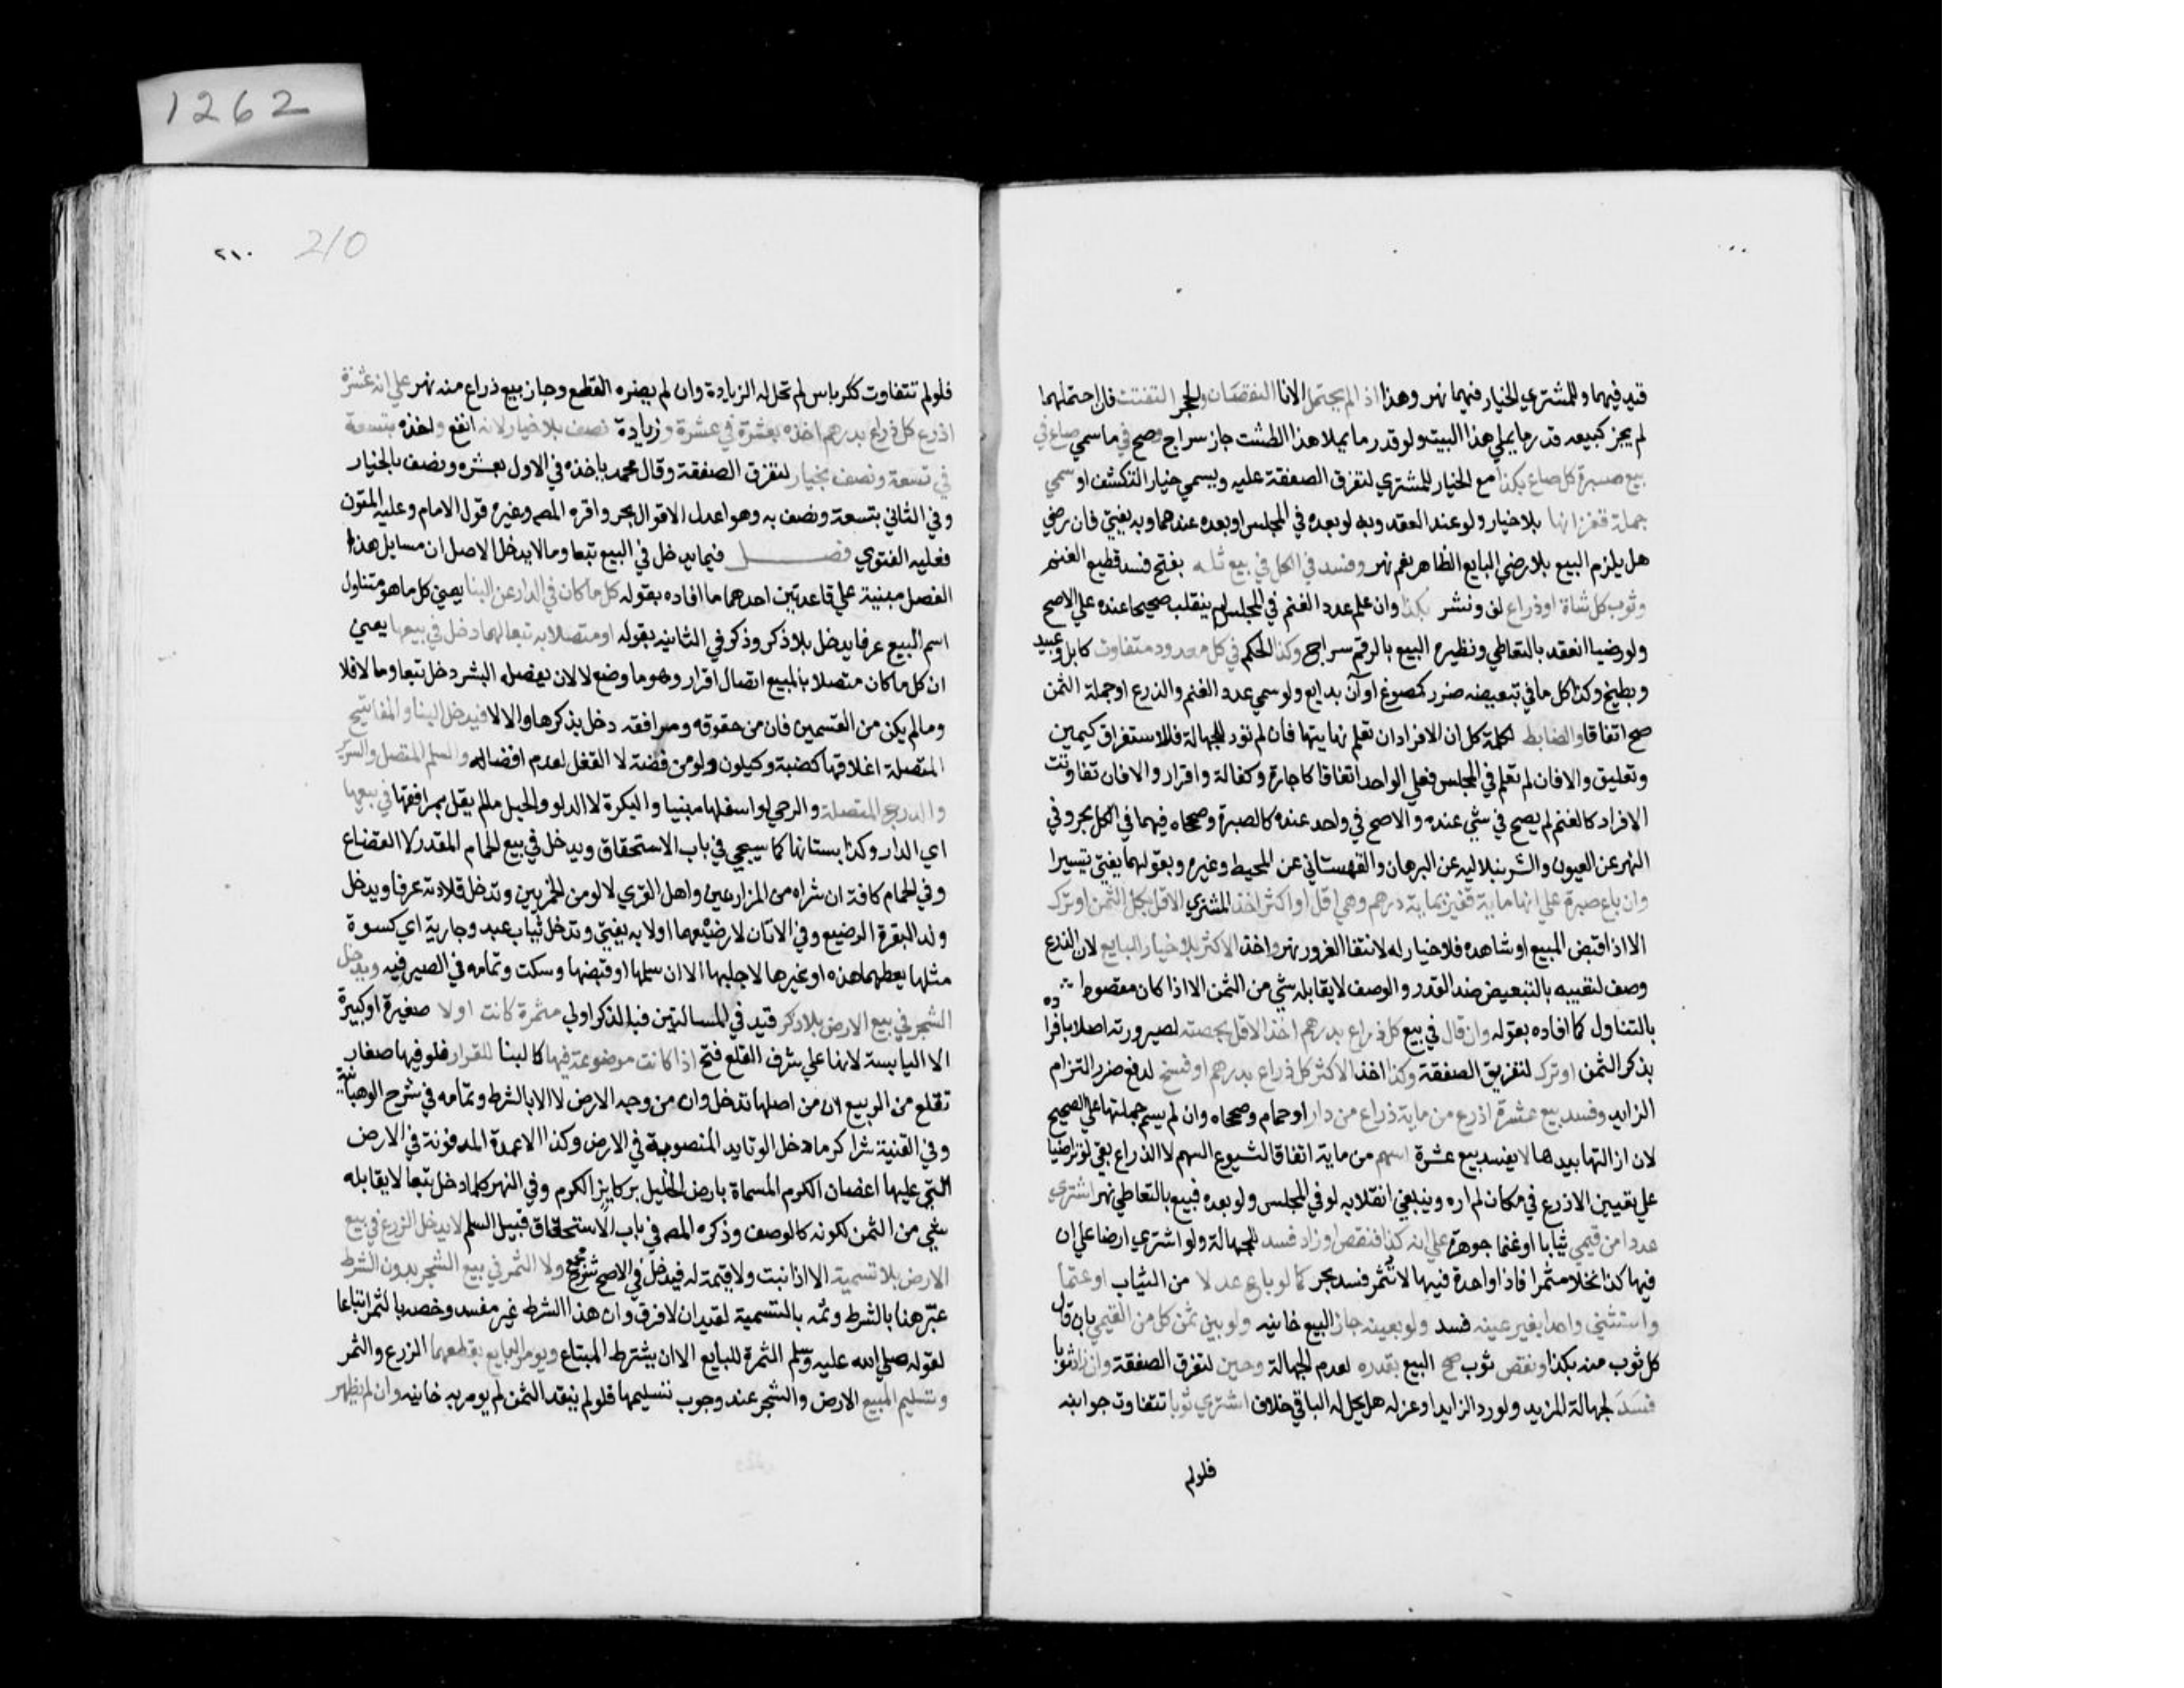 قيد فيهما وللمشتري الخيار فيهما نهر وهذا اذا لم يحتمل الانا النقصان والحجر التفتت فان احتملهما
لم يجز كبيعه قدر ما يملي هذا البيت ولو قدر ما يملا هذا الطشت جاز سراج وصح في ما سمي صاع في
بيع صبرة كل صاع بكذا مع الخيار للمشتري لتفرق الصفقة عليه ويسمي خيار التكشف او سمي
جملة قفزانها بلا خيار ولو عند العقد وبه لو بعده في المجلس او بعده عندهما وبه يفتي فان رضي
هل يلزم البيع بلا رضي البايع الظاهر نعم نهر وفسد في الكل في بيع ثلة بفتح فسد قطيع الغنم
وثوب كل شاة او ذراع لف ونشر بكذا وان علم عدد الغنم في المجلس لم ينقلب صحيحا عنده علي الاصح
ولو رضيا انعقد بالتعاطي ونظيره البيع بالرقم سراج وكذا الحكم في كل معدود متفاوت كابل وعبيد
وبطيخ وكذا كل ما في تبعيضه ضرر كمصوغ اوان بدايع ولو سمي عدد الغنم والذرع او جملة الثمن
صح اتفاقا والضابط لكلمة كل ان الافراد ان تعلم نهايتها فان لم تود للجهالة فللاستغراق كيمين
وتعليق والا فان لم تعلم في المجلس فعلي الواحد اتفاقا كاجارة وكفالة واقرار والا فان تفاوتت
الافراد كالغنم لم يصح في شي عنده والا صح في واحد عنده كالصبرة وصححاه فيهما في الكل بحر وفي
النهر عن العيون والشرنبلاليه عن البرهان والقهستاني عن المحيط وغيره وبقولهما يفتي تيسيرا
وان باع صبرة علي انها ماية قفيز بماية درهم وهي اقل او اكثر اخذ المشتري الاقل بكل الثمن او ترك
الا اذا قبض المبيع او شاهده فلا خيار له لانتفا الغرور نهر واخذ الاكثر بلا خيار البايع لان الذرع
وصف لتعيبه بالتبعيض ضد القدر والوصف لا يقابله شي من الثمن الا اذا كان مقصودا
بالتناول كما افاده بقوله وان قال في بيع كل ذراع بدرهم اخذ الاقل بحصته لصيرورته اصلا بافراده
بذكر الثمن او ترك لتفريق الصفقة وكذا اخذ الاكثر كل ذراع بدرهم او فسخ لدفع ضرر التزام
الزايد وفسد بيع عشرة اذرع من ماية ذراع من دار او حمام وصححاه وان لم يسم جملتها علي الصحيح
لان ازالتها بيدهما لا يفسد بيع عشرة اسهم من ماية اتفاقا لشيوع السهم لا الذراع بقي لو تراضيا
علي تعيين الاذرع في مكان لم اره وينبغي انقلابه لو في المجلس ولو بعده فبيع بالتعاطي نهر اشتري
عددا من قيمي ثيابا او غنما جوهرة علي انه كذا فنقص او زاد فسد للجهالة ولو اشتري ارضا علي ان
فيها كذا نخلا مثمرا فاذا واحدة فيها لا تثمر فسد بحر كما لو باع عدلا من الثياب او غنما
واستثني واحدا بغير عينه فسد ولو بعينه جاز البيع خانيه ولو بين ثمن كل من القيمي بان قال
كل ثوب منه بكذا ونقص ثوب صح البيع بقدره لعدم الجهالة وخير لتفرق الصفقة وان زاد ثوبا
فسد لجهالة المزيد ولو رد الزايد او عزله هل يحل له الباقي خلاف اشتري ثوبا تتفاوت جوانبه
فلولم
210
٢١٠
فلولم تتفاوت ككرباس لم تحل له الزيادة وان لم يضره القطع وجاز بيع ذراع منه نهر علي انه عشرة
اذرع كل ذراع بدرهم اخذه بعشرة في عشرة وزيادة نصف بلا خيار لانه انفع واخذه بتسعة
في تسعة ونصف بخيار لتفرق الصفقة وقال محمد ياخذه في الاول بعشرة ونصف بالخيار
وفي الثاني بتسعة ونصف به وهو اعدل الاقوال بحر واقره المصه وغيره قول الامام وعليه المتون
فعليه الفتوي فصل فيما يدخل في البيع تبعا وما لا يدخل الاصل ان مسايل هذا
الفصل مبنية علي قاعدتين احدهما ما افاده بقوله كل ما كان في الدار عن البنا يعني كل ما هو متناول
اسم المبيع عرفا يدخل بلا ذكر وذكر في الثانيه بقوله او متصلا به تبعا لها دخل في بيعها يعني
ان كل ما كان متصلا بالمبيع اتصال اقرار وهو ما وضع لا لان يفصله البشر دخل تبعا وما لا فلا
وما لم يكن من القسمين فان من حقوقه ومرافقه دخل بذكرها والا لا فيدخل البنا والمفاتيح
المتصلة اغلاقها كضبة وكيلون ولو من فضة لا القفل لعدم اتصاله والسلم المتصل والسرير
والدرج المتصلة والرحي لو اسفلها مبنيا والبكرة لا الدلو والحبل ما لم يقل بمرافقها في بيعها
اي الدار وكذا بستانها كما سيجي في باب الاستحقاق ويدخل في بيع الحمام القدر لا القصاع
وفي الحمار اكافه ان شراه من المزارعين واهل القري لا لو من الحمريين وتدخل قلادته عرفا ويدخل
ولد البقرة الرضيع وفي الاتان لا رضيعهما اولا به يفتي وتدخل ثياب عبد وجارية اي كسوة
مثلها يعطيهما هذه او غيرها لا حليها الا ان سلمها او قبضها وسكت وتمامه في الصيرفيه ويدخل
الشجر في بيع الارض بلا ذكر قيد في المسالتين فبالذكر اولي مثمرة كانت اولا صغيرة او كبيرة
الا اليابسة لانها علي شرف القلع فتح اذا كانت موضوعة فيها كالبنا للقرار فلو فيها صغار
تقلع من الربيع ان من اصلها تدخل وان من وجه الارض لا الا بالشرط وتمامه في شرح الوهبانية
وفي القنية شرا كرما دخل الوتايد المنصوبة في الارض وكذا الاعمدة المدفونة في الارض
التي عليها اغصان الكرم المسماة بارض الخليل بركايز الكرم وفي النهر كلما دخل تبعا لا يقابله
شي من الثمن لكونه كالوصف وذكره المصه في باب الاستحقاق قبيل السلم لا يدخل الزرع في بيع
الارض بلا تسمية الا اذا نبت ولا قيمة له فيدخل في الاصح شرح مجمع ولا الثمر في بيع الشجر بدون الشرط
عبر هنا بالشرط وثمه بالتسمية لفيد ان لا فرق وان هذا الشرط غير مفسد وخصه بالثمر اتباعا
لقوله صلي الله عليه وسلم الثمرة للبايع الا ان يشترط المبتاع ويومر البايع بقطعهما الزرع والثمر
وتسليم المبيع الارض والشجر عند وجوب تسليمها فلو لم ينقد الثمن لم يومر به خانيه وان لم يظهر
1262